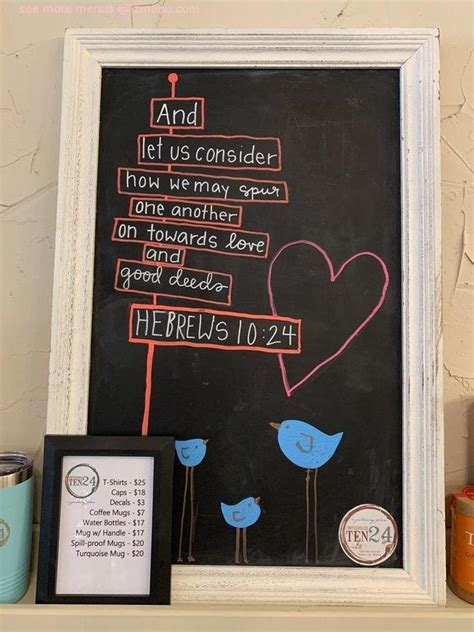 see more menus @ zmenu.com
And
let us consider
how we may spur
one another
on towards love
and
good deeds
HEBREWS 10:24
TEN24
a gathering place
T-Shirts - $25
Caps - $18
Decals - $3
Coffee Mugs - $7
Water Bottles - $17
Mug w/ Handle - $17
Spill-proof Mugs - $20
Turquoise Mug - $20
a gathering place
TEN24